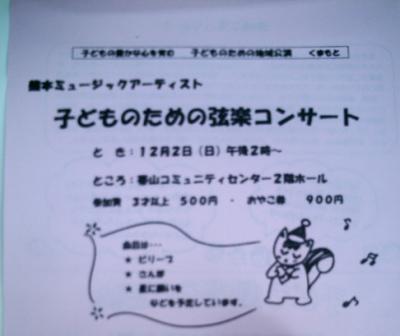 子どもの豊かな心を育む 子どものための地域公演 くまもと
熊本ミュージックアーティスト
子どものための弦楽コンサート
と き:12月2日(日)午後2時~
ところ:春山コミュニティセンター2階ホール
参加費 3才以上 500円 ・ おやこ券 900円
曲目は・・・
★ ビリーブ
★ さんぽ
★ 星に願いを
などを予定しています。